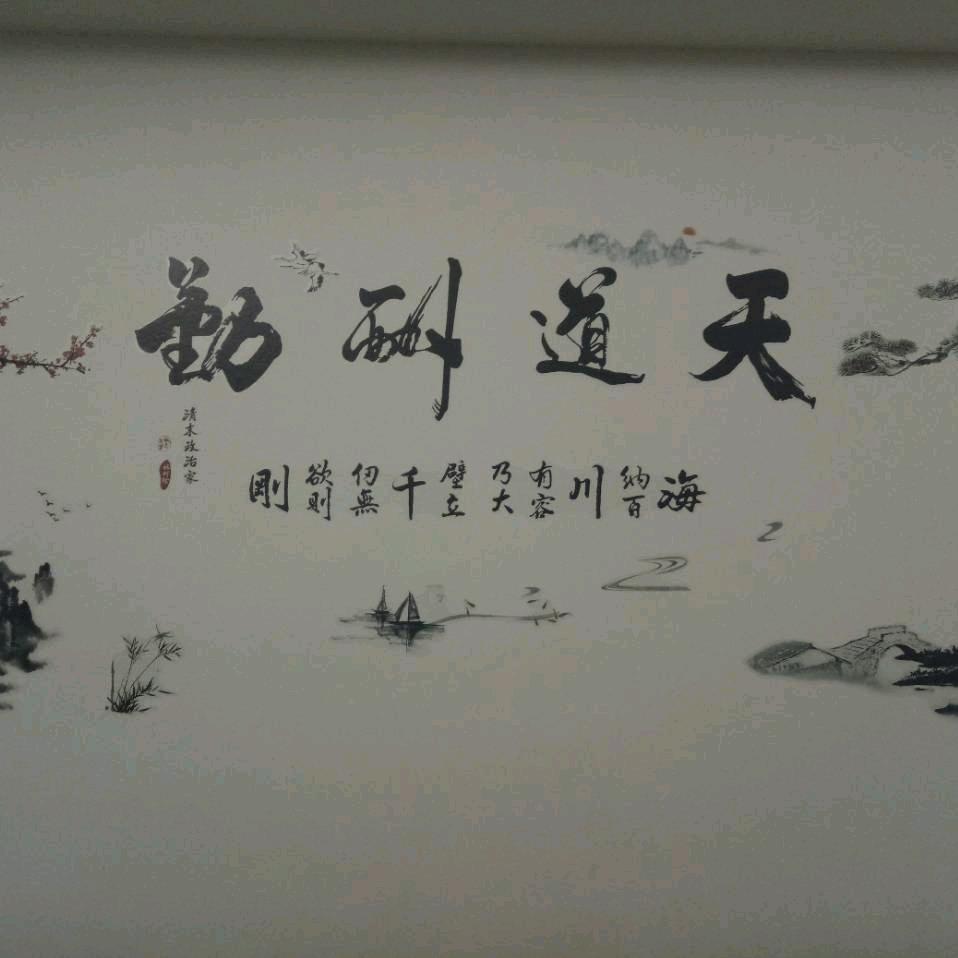 天道酬勤
海纳百川有容乃大壁立千仞無欲则剛
清末政治家